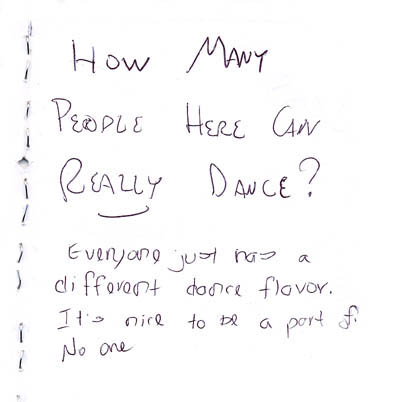 HOW MANY
PEOPLE HERE CAN
REALLY DANCE?
Everyone just has a
different dance flavor.
It's nice to be a part of.
No one